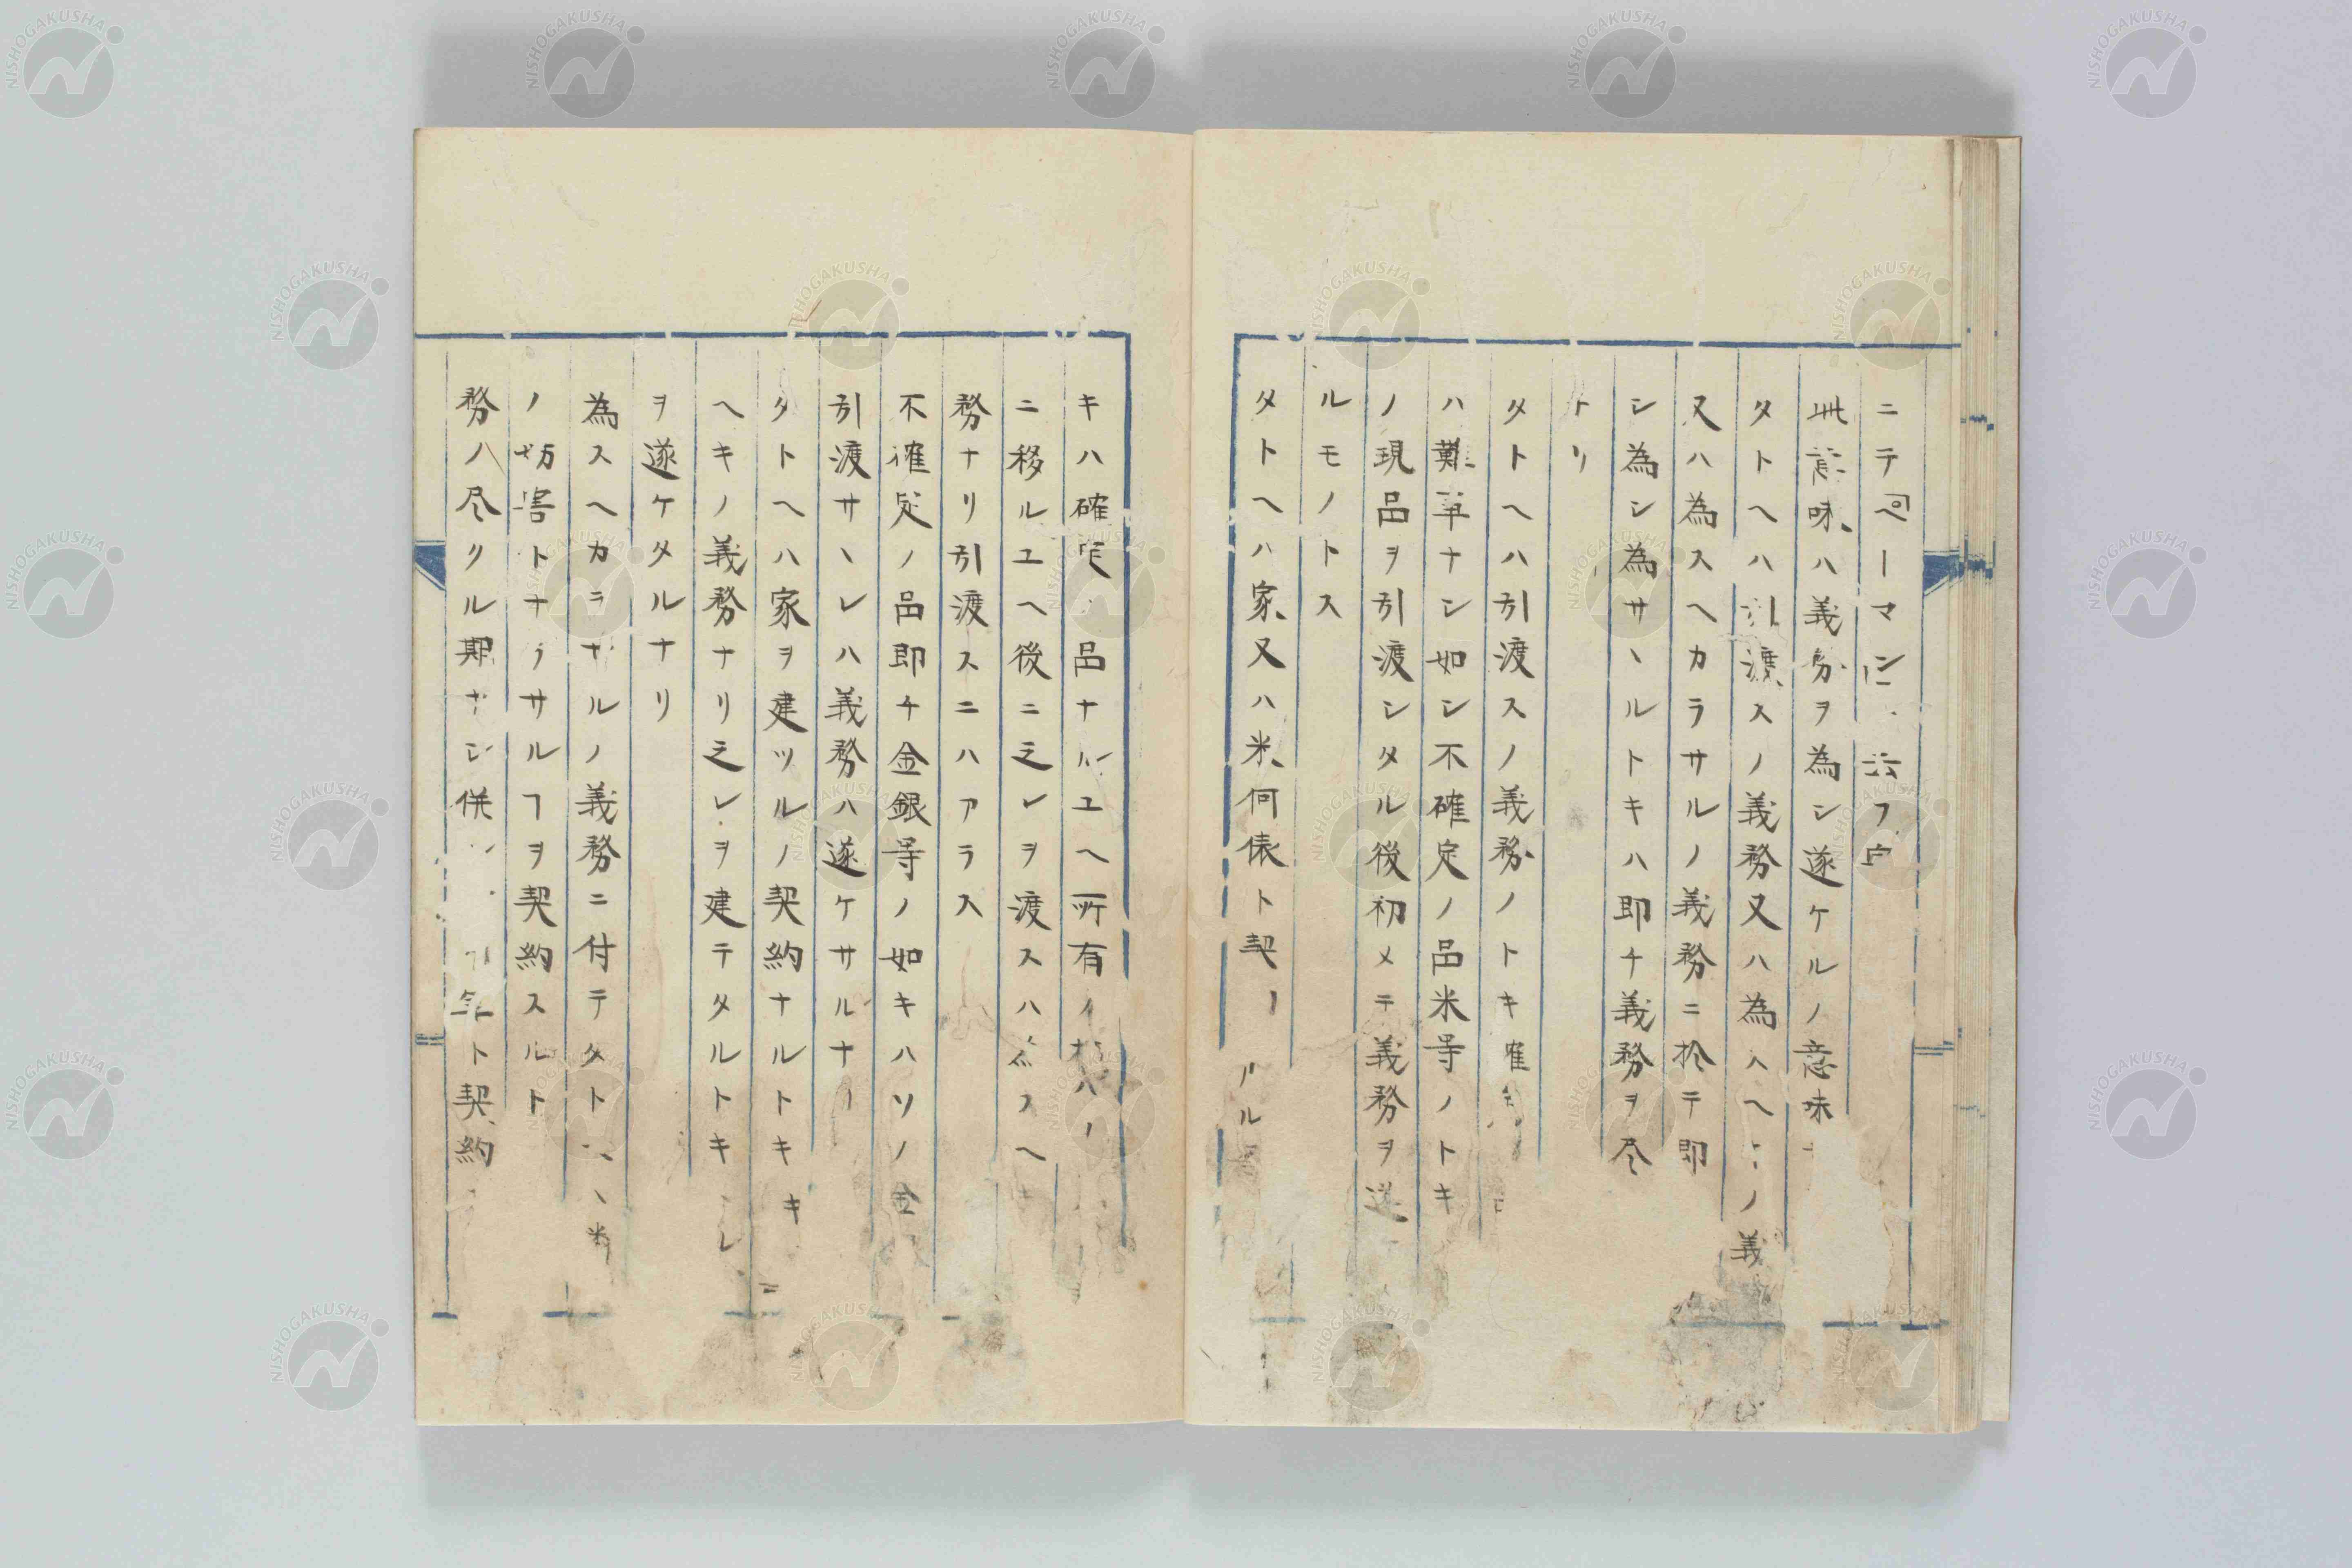 ニテペーマン 云フ
此意味ハ義務ヲ為シ遂ケルノ意味
タトヘハ引渡スノ義務又ハ為スヘ ノ義
又ハ為スヘカラサルノ義務ニ於テ即
シ為シ為サヽルトキハ即チ義務ヲ尽
トリ
タトヘハ引渡スノ義務ノトキ
ハ難事ナシ如シ不確定ノ品米等ノトキ
ノ現品ヲ引渡シタル後初メテ義務ヲ遂
ルモノトス
タトヘハ家又ハ米何俵ト契 ル
キハ確定 品ナルユヘ所有ノ権ハ
ニ移ルユヘ後ニ之レヲ渡スハ ノヘ
務ナリ引渡スニハアラス
不確定ノ品即チ金銀等ノ如キハソノ金
引渡サヽレハ義務ハ遂ケサルナ
タトヘハ家ヲ建ツルノ契約ナルトキ キ
ヘキノ義務ナリ之レヲ建テタルトキ レ
ヲ遂ケタルナリ
為スヘカラサルノ義務ニ付テタト
ノ妨害トナラサルヿヲ契約スルト
務ハ尽クル期ナシ併 年ト契約
NISHOGAKUSHA